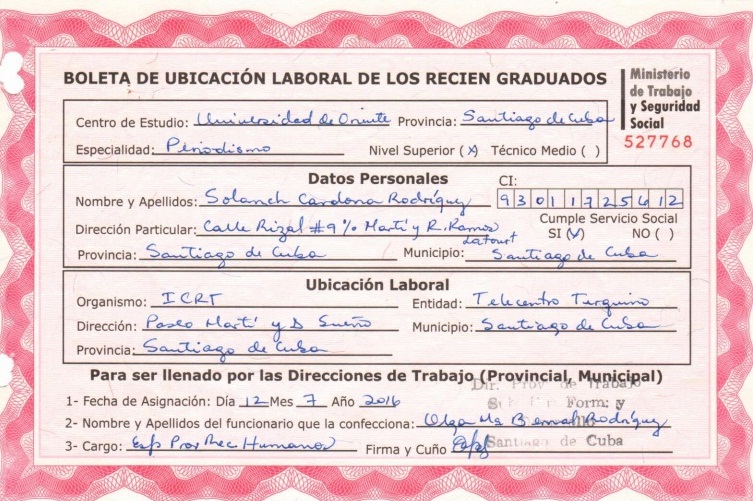 BOLETA DE UBICACIÓN LABORAL DE LOS RECIEN GRADUADOS
Ministerio
de Trabajo
y Seguridad
Social
527768
Centro de Estudio: Universidad de Oriente Provincia: Santiago de Cuba
Especialidad: Periodismo Nivel Superior (x) Técnico Medio ( )
Datos Personales
CI:
Nombre y Apellidos: Solanch Cardona Rodríguez 93011725612
Cumple Servicio Social
Dirección Particular: Calle Rizal #9 % Martí y R. Ramos Latourt SI (x) NO ( )
Provincia: Santiago de Cuba Municipio: Santiago de Cuba
Ubicación Laboral
Organismo: ICRT Entidad: Telecentro Turquino
Dirección: Paseo Martí y D Sueño Municipio: Santiago de Cuba
Provincia: Santiago de Cuba
Para ser llenado por las Direcciones de Trabajo (Provincial, Municipal)
Dir. Prov de Trabajo
1- Fecha de Asignación: Día 12 Mes 7 Año 2016
Form: y
2- Nombre y Apellidos del funcionario que la confecciona: Olga Ma Bernal Rodríguez
3- Cargo: Esp Prov Rec Humanos Firma y Cuño Santiago de Cuba